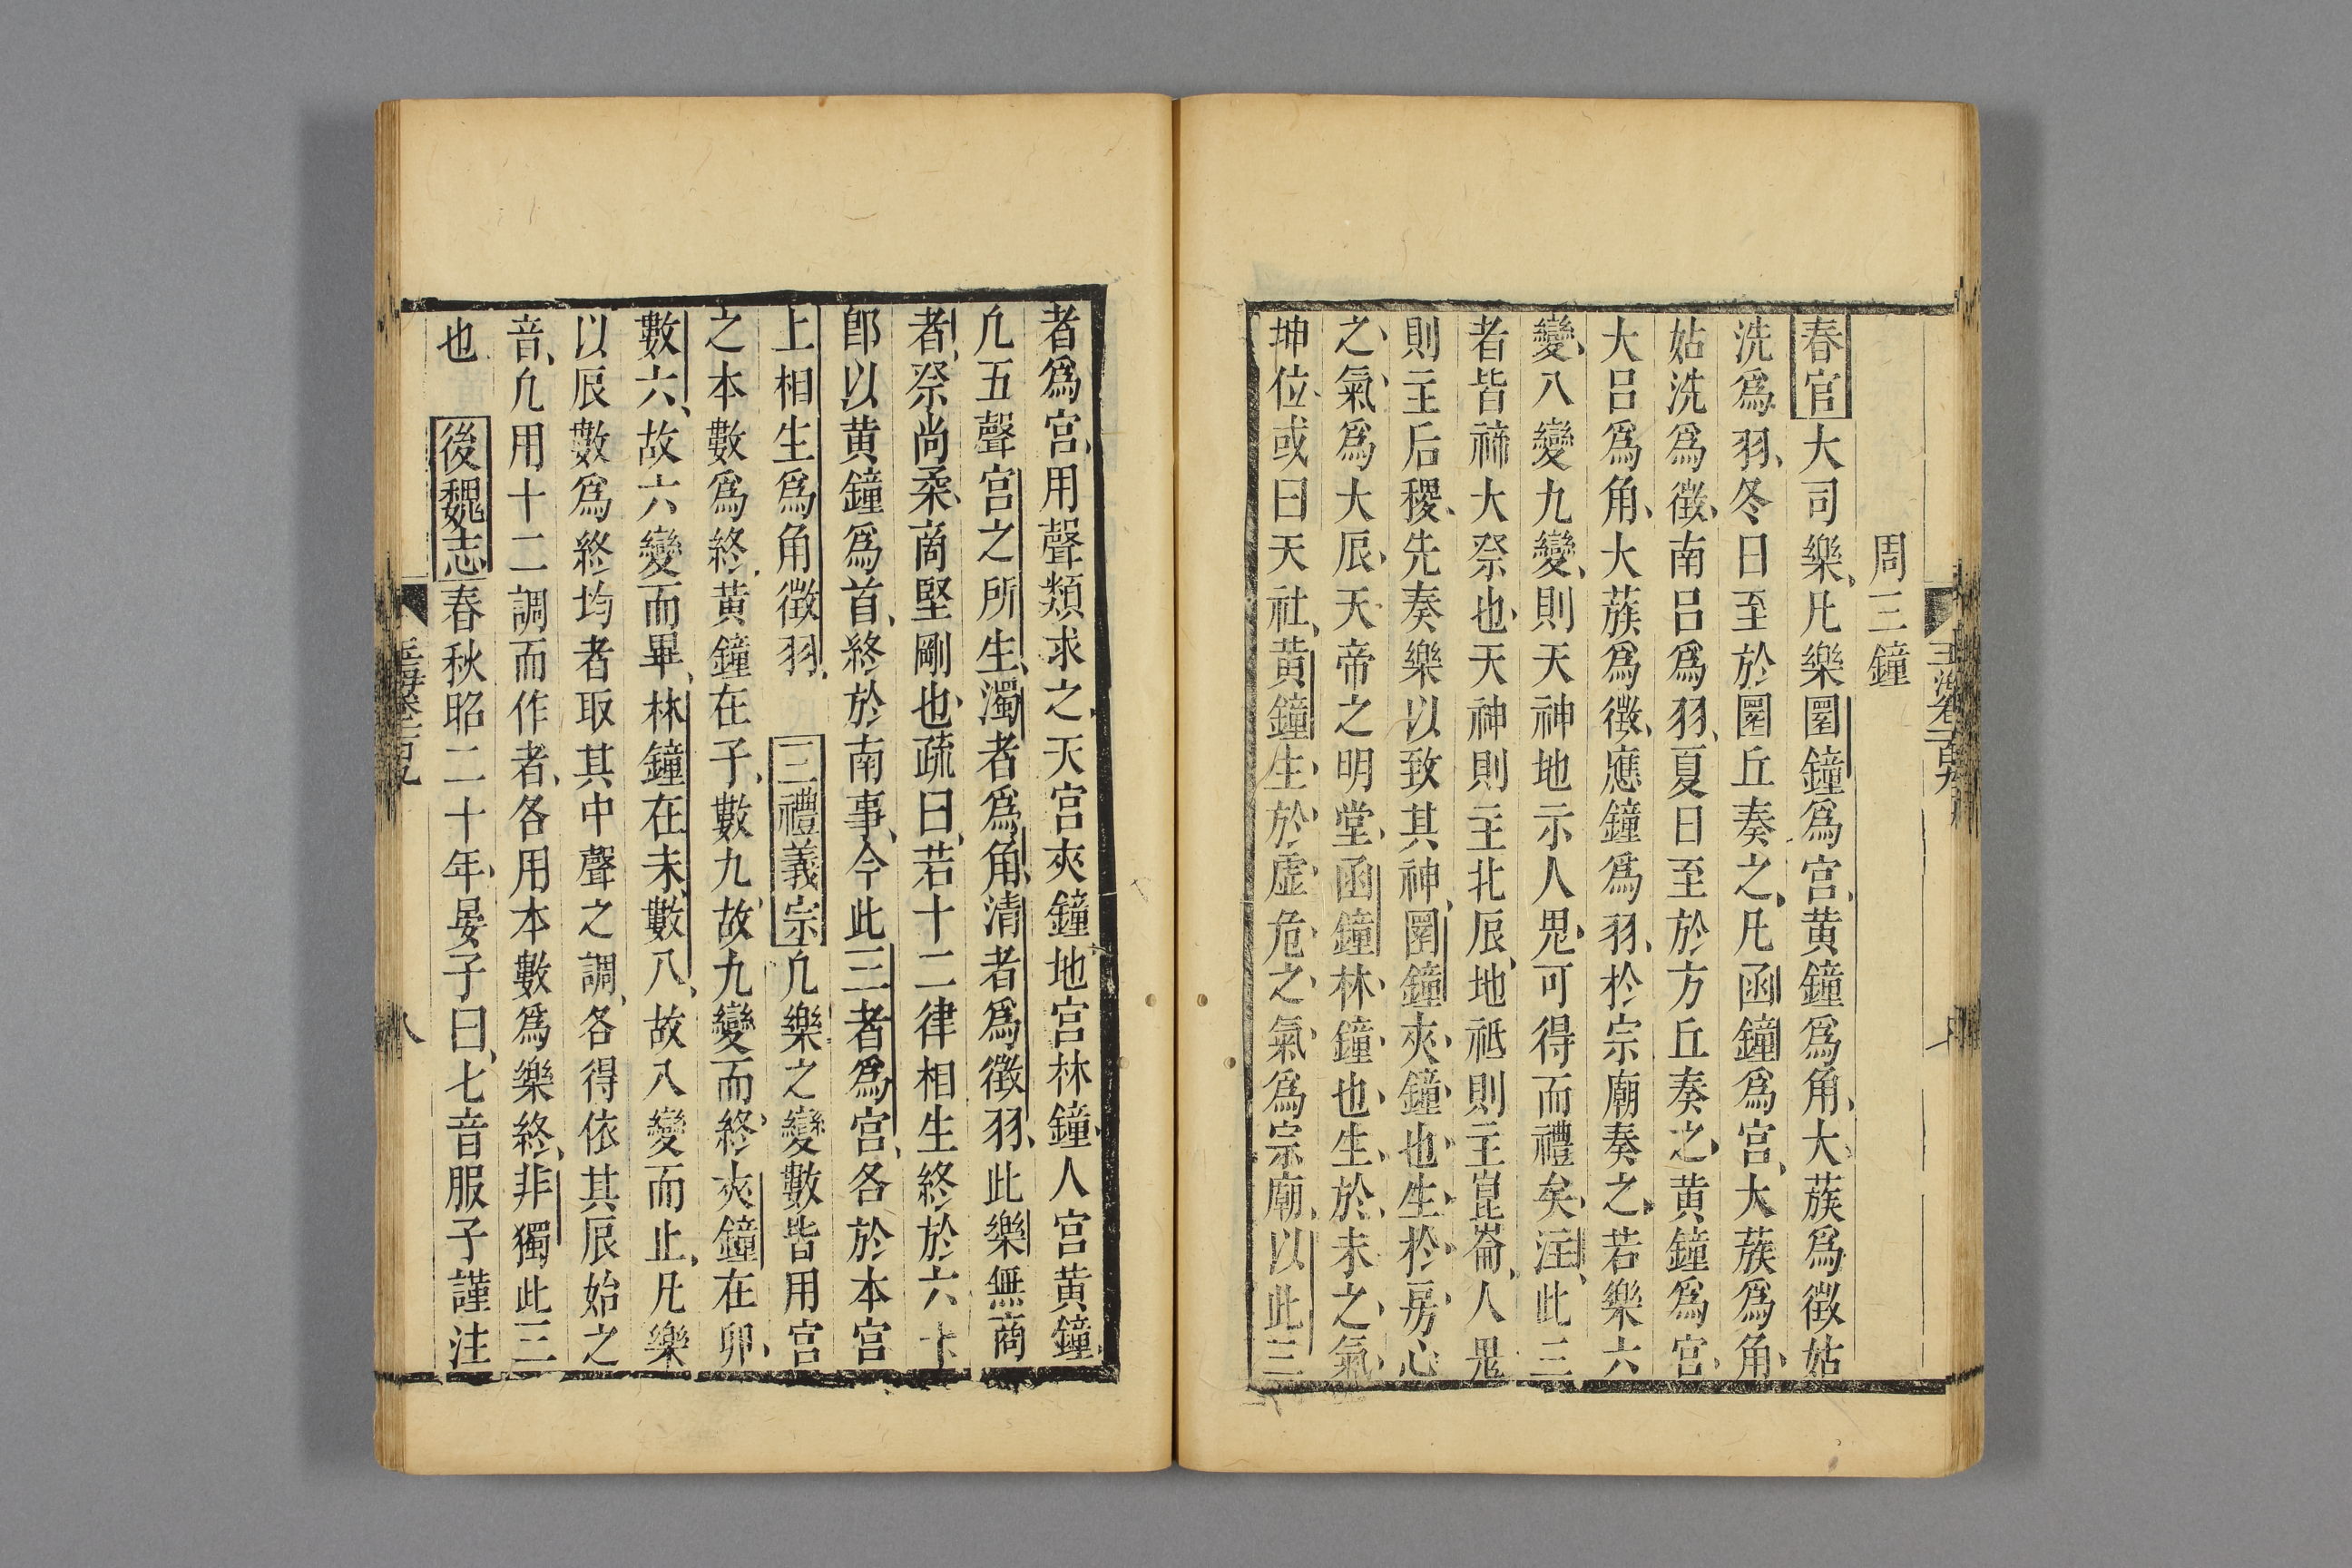 周三鐘
春官大司樂凡樂圜鐘爲宮黄鐘爲角大蔟爲徵姑
洗爲羽冬日至於圜丘奏之凡函鐘爲宮大蔟爲角
姑洗爲徵南呂爲羽夏日至於方丘奏之黄鐘爲宮
大呂爲角大蔟爲徵應鐘爲羽於宗廟奏之若樂六
變八變九變則天神地示人鬼可得而禮矣注此三
者皆禘大祭也天神則主北辰地祇則主崑崙人鬼
則主后稷先奏樂以致其神圜鐘夾鐘也生於房心
之氣爲大辰天帝之明堂函鐘林鐘也生於未之氣
坤位或曰天社黄鐘生於虛危之氣爲宗廟以此三
者爲宮用聲類求之天宮夾鐘地宮林鐘人宮黄鐘
凢五聲宮之所生濁者爲角清者爲徵羽此樂無商
者祭尚柔商堅剛也疏曰若十二律相生終於六十
卽以黄鐘爲首終於南事今此三者爲宮各於本宮
上相生爲角徵羽 三禮義宗凢樂之變數皆用宮
之本數爲終黄鐘在子數九故九變而終夾鐘在卯
數六故六變而畢林鐘在未數八故八變而止凡樂
以辰數爲終均者取其中聲之調各得依其辰始之
音凢用十二調而作者各用本數爲樂終非獨此三
也 後魏志春秋昭二十年晏子曰七音服子謹注
玉海卷一百九
八